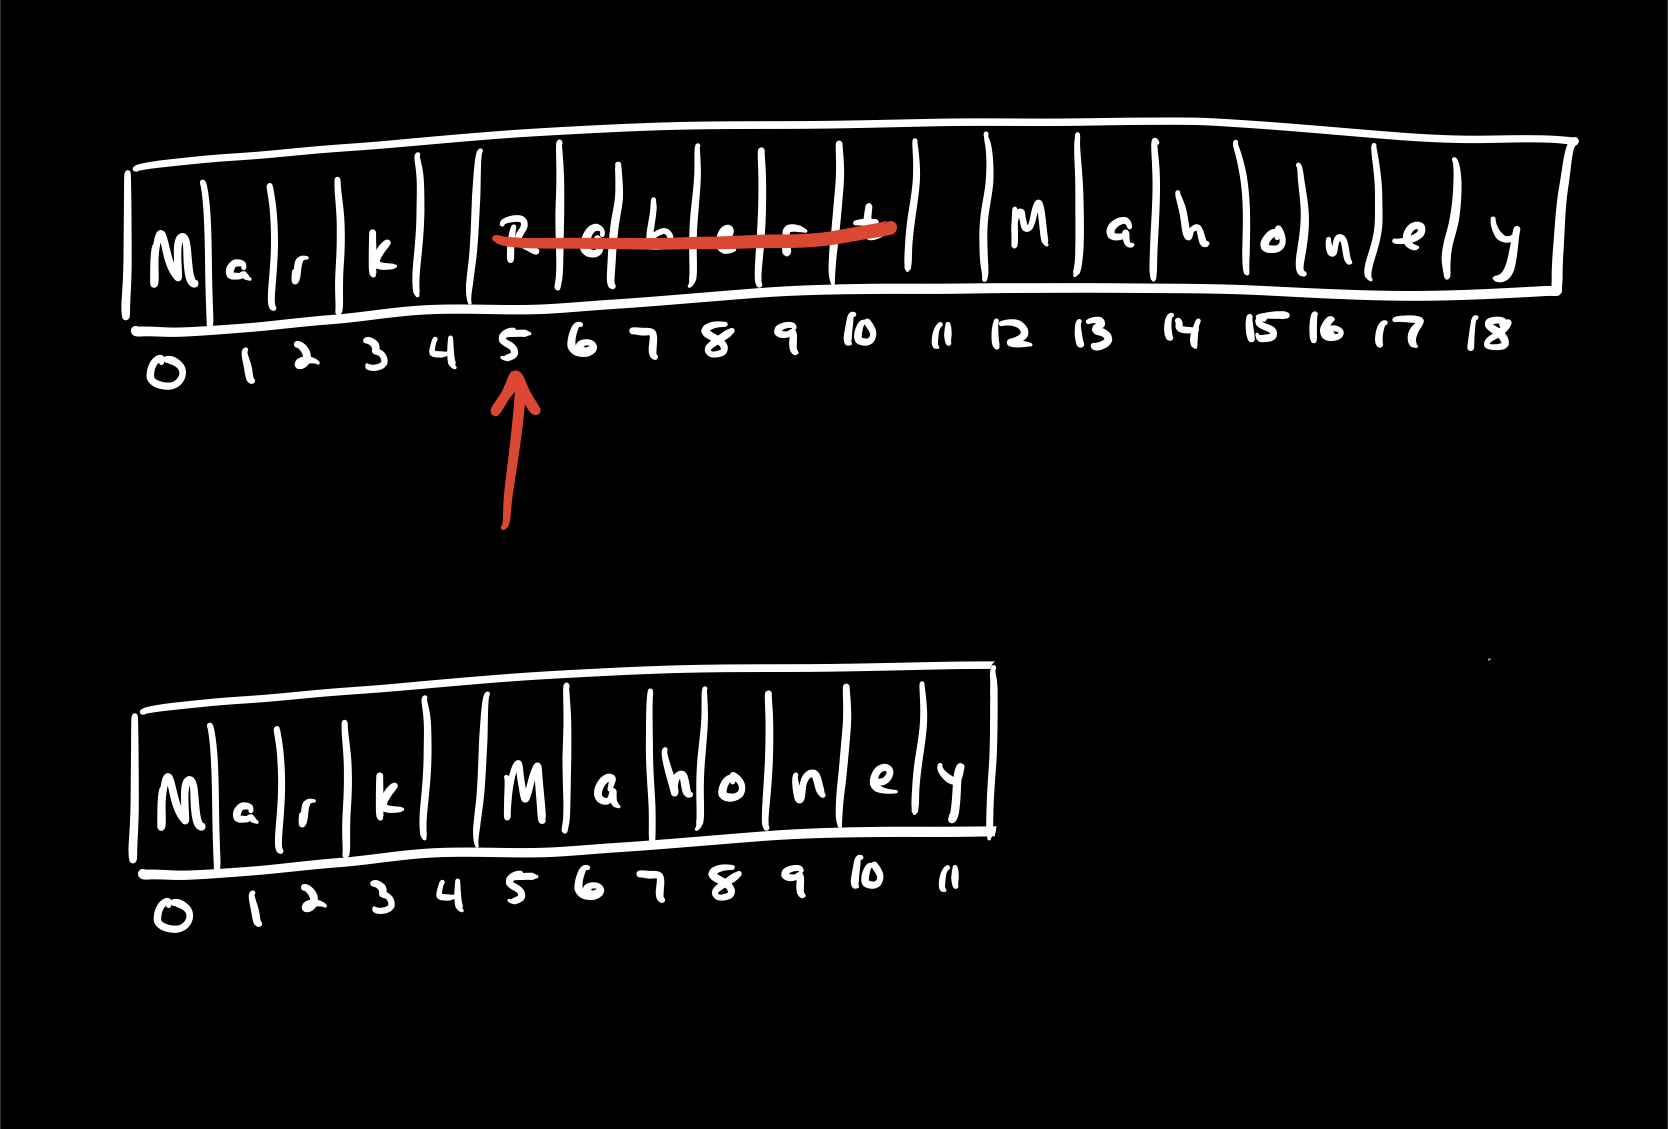 Mark Robert Mahoney
0 1 2 3 4 5 6 7 8 9 10 11 12 13 14 15 16 17 18
Mark Mahoney
0 1 2 3 4 5 6 7 8 9 10 11